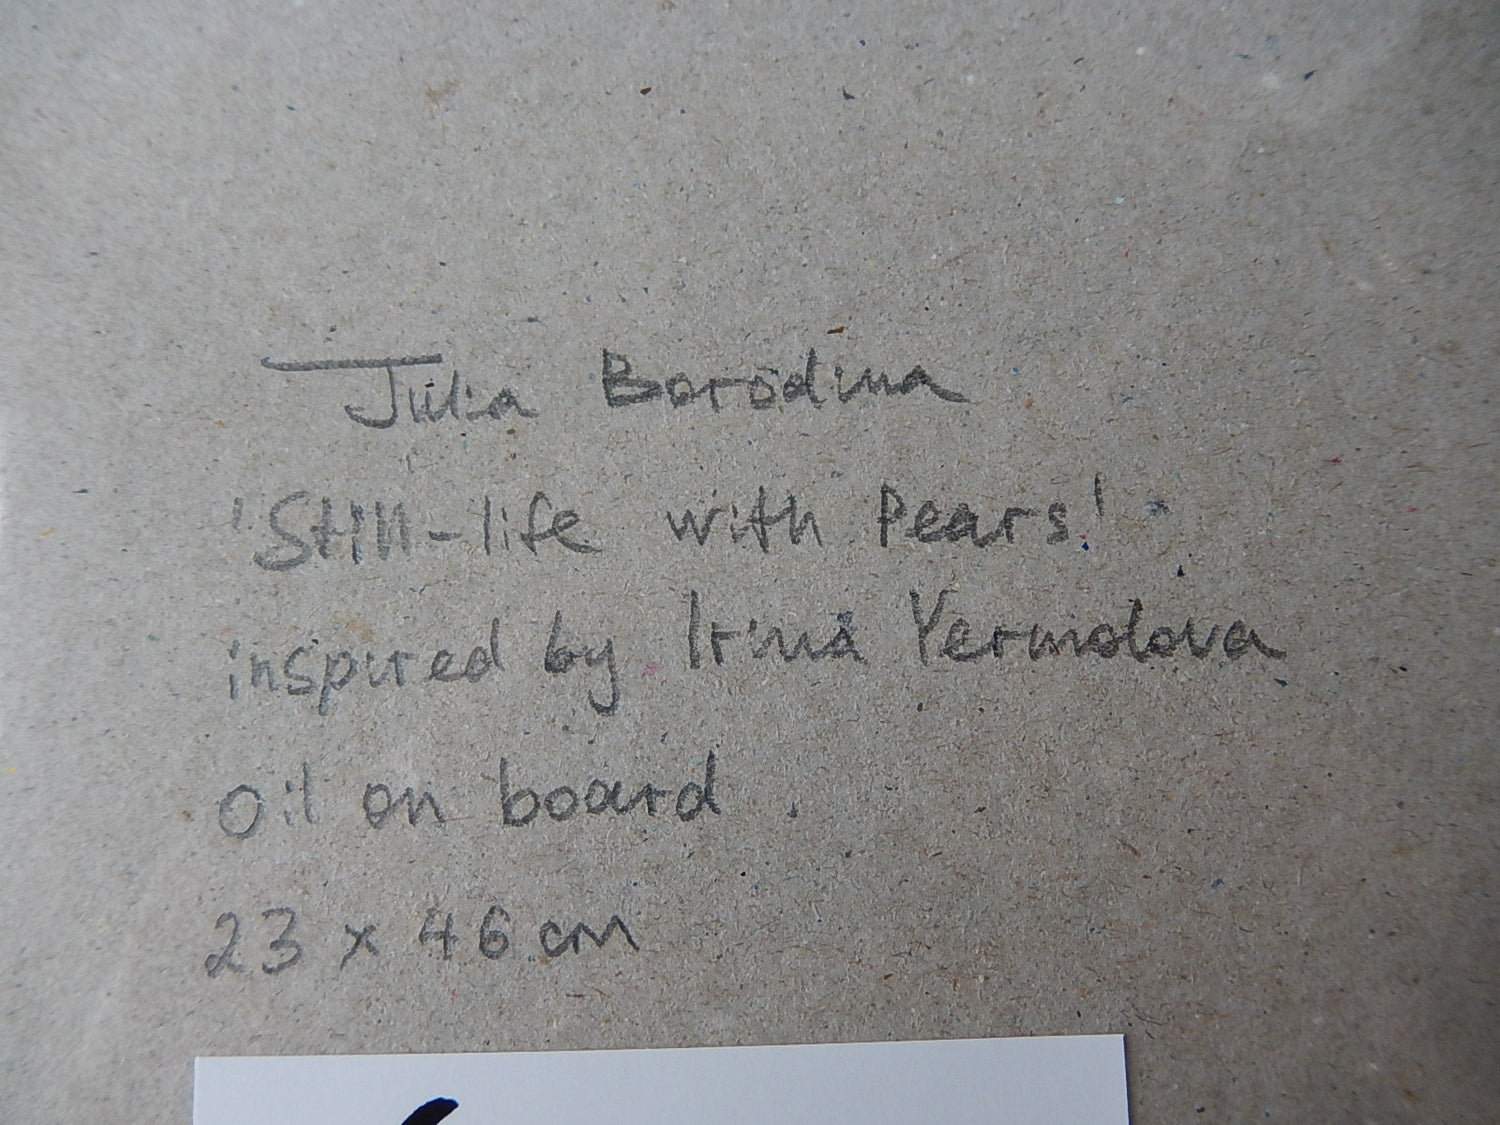 Julia Borodina
'Still-life with Pears'
inspired by Irina Yermolova
Oil on board.
23 x 46 cm